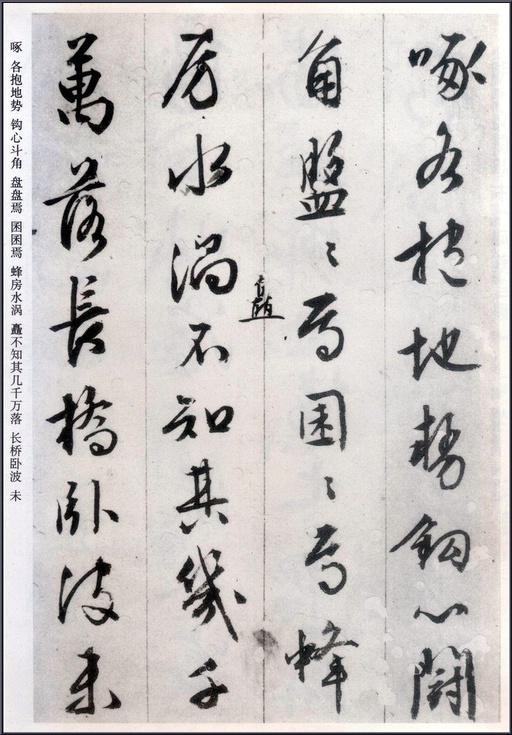 啄各抱地勢鈎心鬭
角盤〻焉囷〻焉蜂
矗
房水渦不知其幾千
萬落長橋卧波未
啄 各抱地势 钩心斗角 盘盘焉 囷囷焉 蜂房水涡 矗不知其几千万落 长桥卧波 未